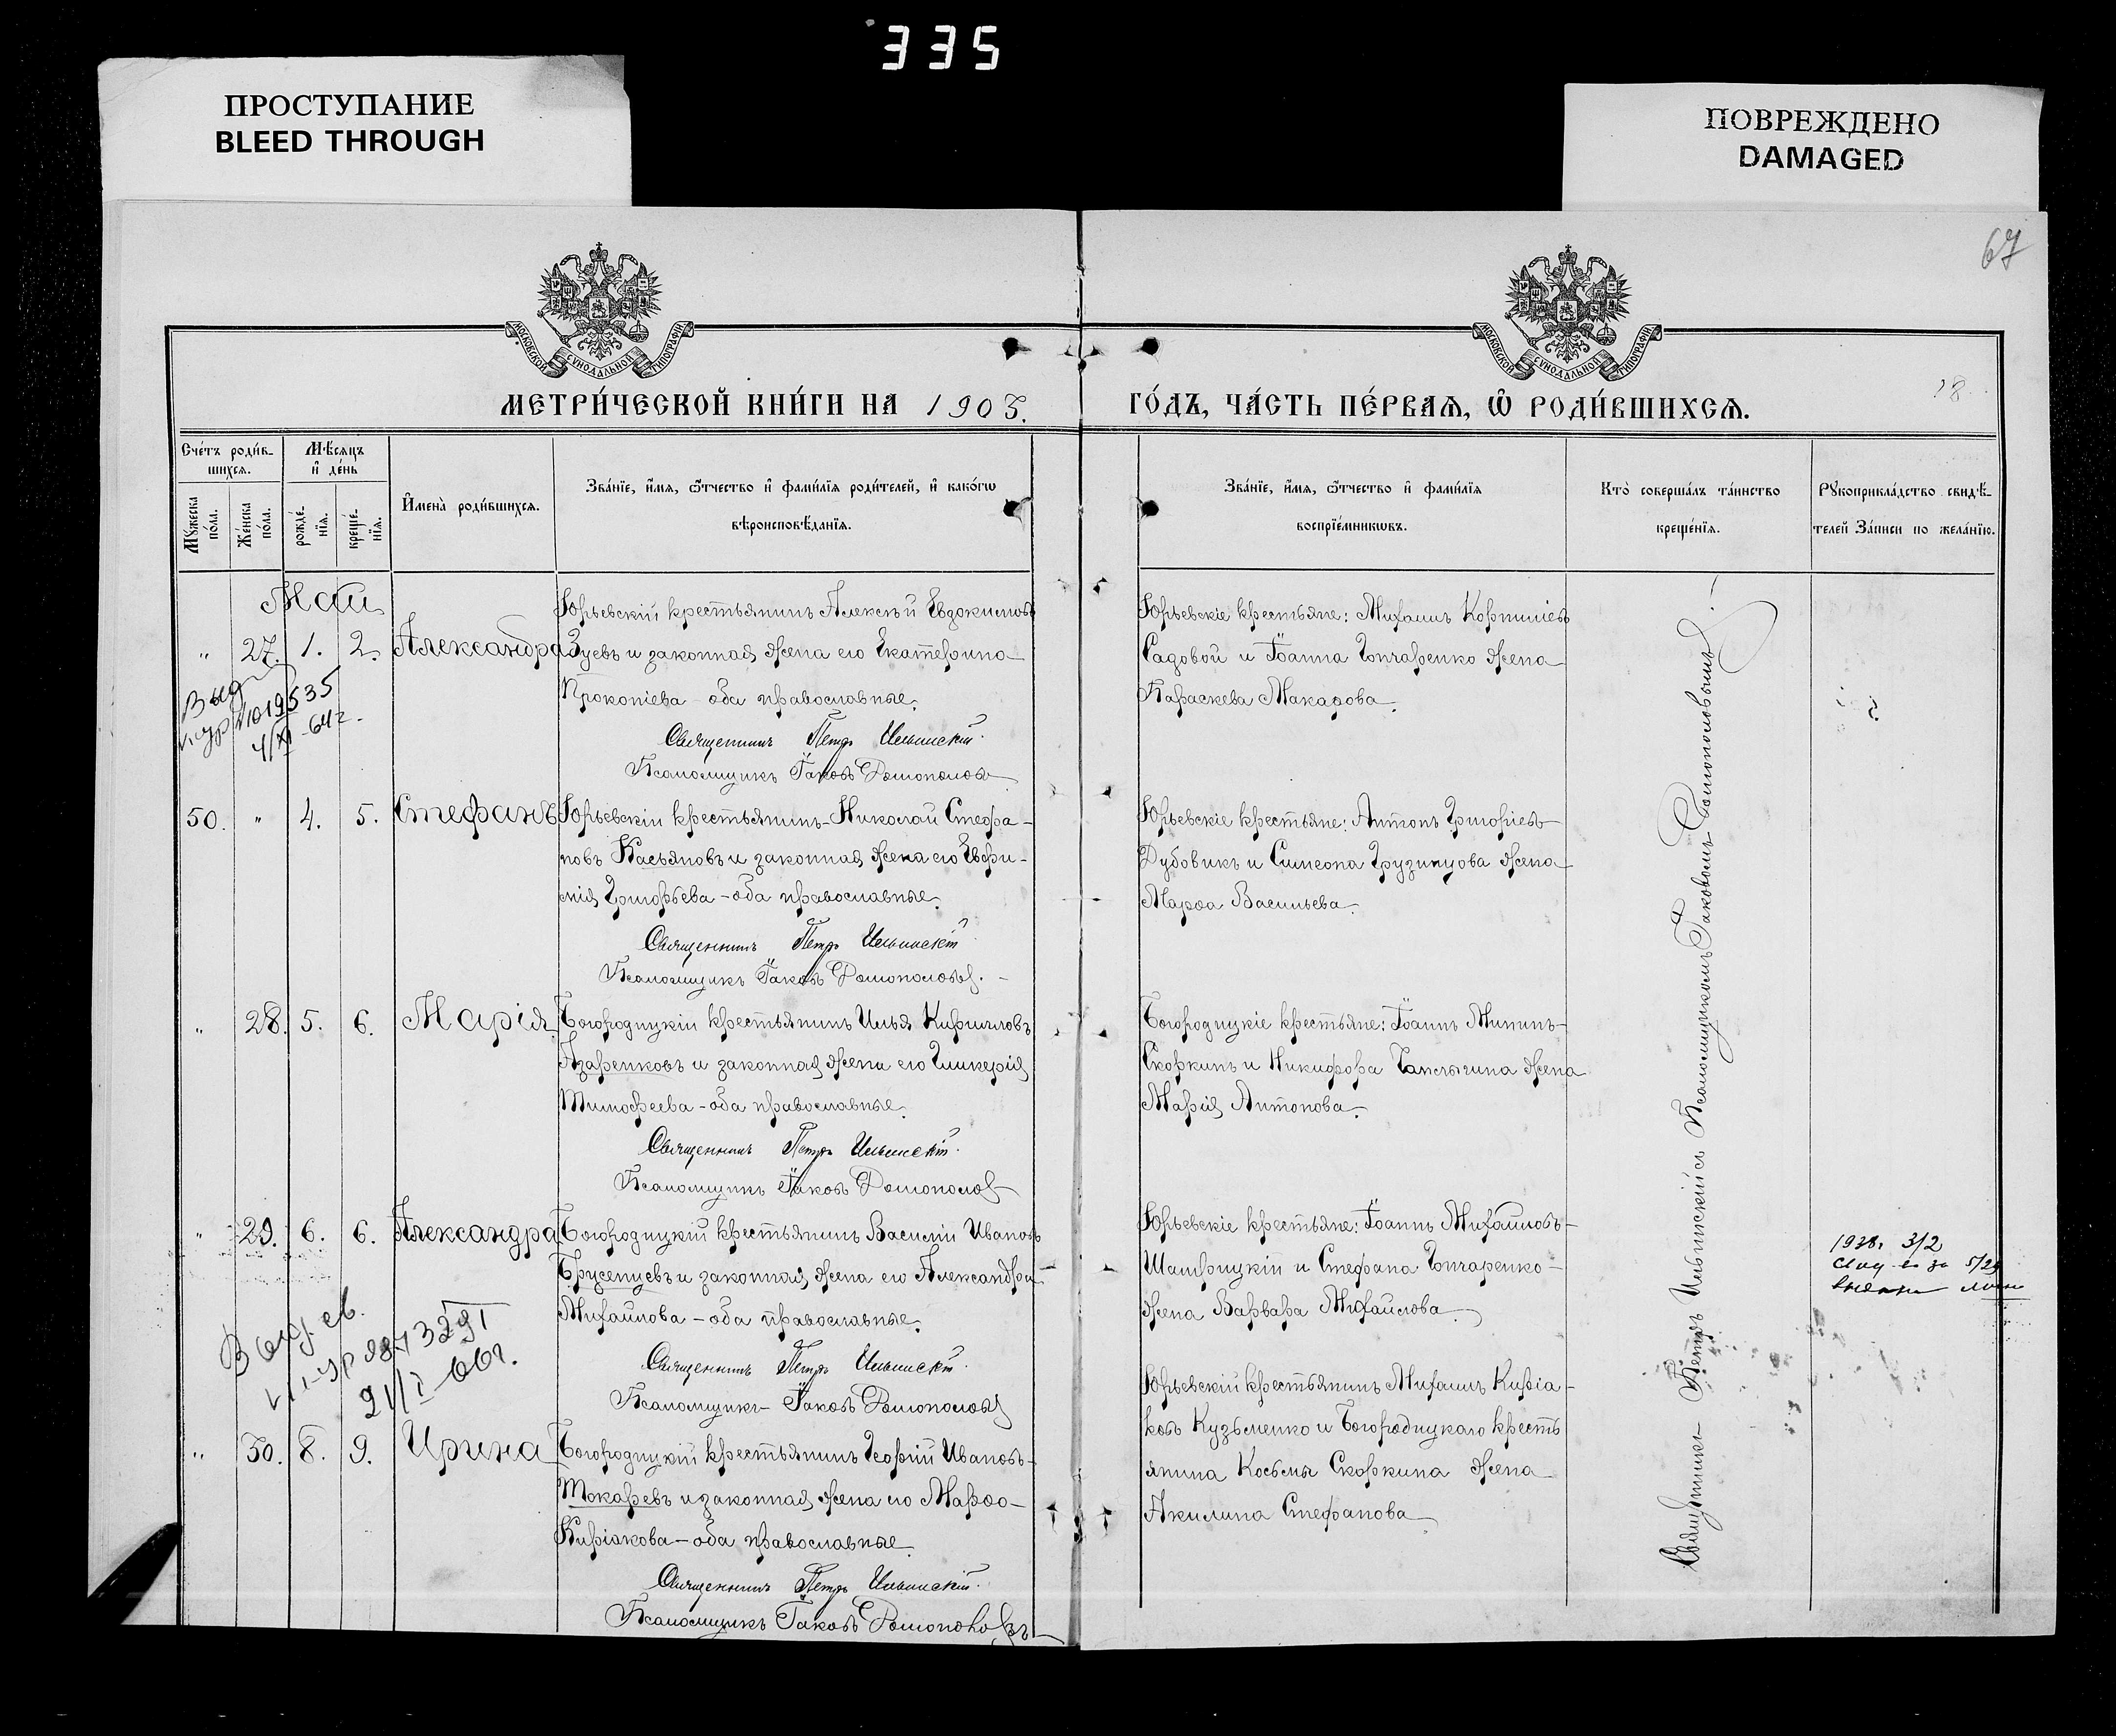 335
ПРОСТУПАНИЕ
BLEED THROUGH
ПОВРЕЖДЕНО
DAMAGED
67
МОСКОВСКОЙ СѴНОДАЛЬНОЙ ТИПОГРАФІИ
МОСКОВСКОЙ СѴНОДАЛЬНОЙ ТИПОГРАФІИ
МЕТРИ́ЧЕСКОЙ КНИ́ГИ НА 1905.
ГО́ДЪ, ЧА́СТЬ ПЕ́РВАѦ, Ѡ҆ РОДИ́ВШИХСѦ.
18.
Сче́тъ роди́в-
шихсѧ.
Мѣ́сѧцъ
и҆ де́нь
Мꙋ́жеска по́ла.
Же́нска по́ла.
рожде́-
нїѧ.
креще́-
нїѧ.
И҆мена̀ роди́вшихсѧ.
Зва́нїе, и҆́мѧ, ѻ҆́тчество и҆ фами́лїѧ роди́телей, и҆ како́гѡ
вѣроисповѣ́данїѧ.
Зва́нїе, и҆́мѧ, ѻ҆́тчество и҆ фами́лїѧ
воспрїе́мникѡвъ.
Кто̀ соверша́лъ та́инство
креще́нїѧ.
Рꙋкоприкла́дство свидѣ́-
телей За́писи по жела́нїю.
Май
" 27. 1. 2. Александра
Юрьевскій крестьянинъ Алексѣй Евдокимовъ
Зуевъ и законная жена его Екатерина
Прокопіева - оба православные.
Священникъ Петръ Ильинскій.
Псаломщикъ Іаковъ
Юрьевскіе крестьяне: Михаилъ Корниліевъ
Садовой и Іоанна Гончаренко жена
Параскева Макарова.
Выд
№1019535
4/XI-64г.
50. " 4. 5. Стефанъ
Юрьевскій крестьянинъ Николай Стефа-
новъ Касьяновъ и законная жена его Евфи-
мія Григорьева - оба православные.
Священникъ Петръ Ильинскій
Псаломщикъ Іаковъ
Юрьевскіе крестьяне: Антонъ Григорьевъ
Дубовикъ и Симеона Грузинцова жена
Марѳа Васильева.
" 28. 5. 6. Марія
Богородицкій крестьянинъ Илья Кирилловъ
Азаренковъ и законная жена его Гликерія
Тимофеева - оба православные.
Священникъ Петръ Ильинскій.
Псаломщикъ Іаковъ
Богородицкіе крестьяне: Іоаннъ Мининъ
Скоркинъ и Никифора жена
Марія Антонова.
" 29. 6. 6. Александра
Богородицкій крестьянинъ Василій Ивановъ
Брусенцевъ и законная жена его Александра
Михайлова - оба православные.
Священникъ Петръ Ильинскій.
Псаломщикъ Іаковъ
Юрьевскіе крестьяне: Іоаннъ Михайловъ
и Стефана Гончаренко
жена Варвара Михайлова.
1938г 3/2
21/I-66г.
" 30. 8. 9. Ирина
Богородицкій крестьянинъ Георгій Ивановъ
Токаревъ и законная жена его Марѳа
Киріакова - оба православные.
Священникъ Петръ Ильинскій.
Псаломщикъ Іаковъ
Юрьевскій крестьянинъ Михаилъ Киріа-
ковъ Кузьменко и Богородицкаго кресть
янина Косьмы Скоркина жена
Акилина Стефанова
Священникъ Петръ Ильинскій съ Псаломщикомъ Іаковомъ